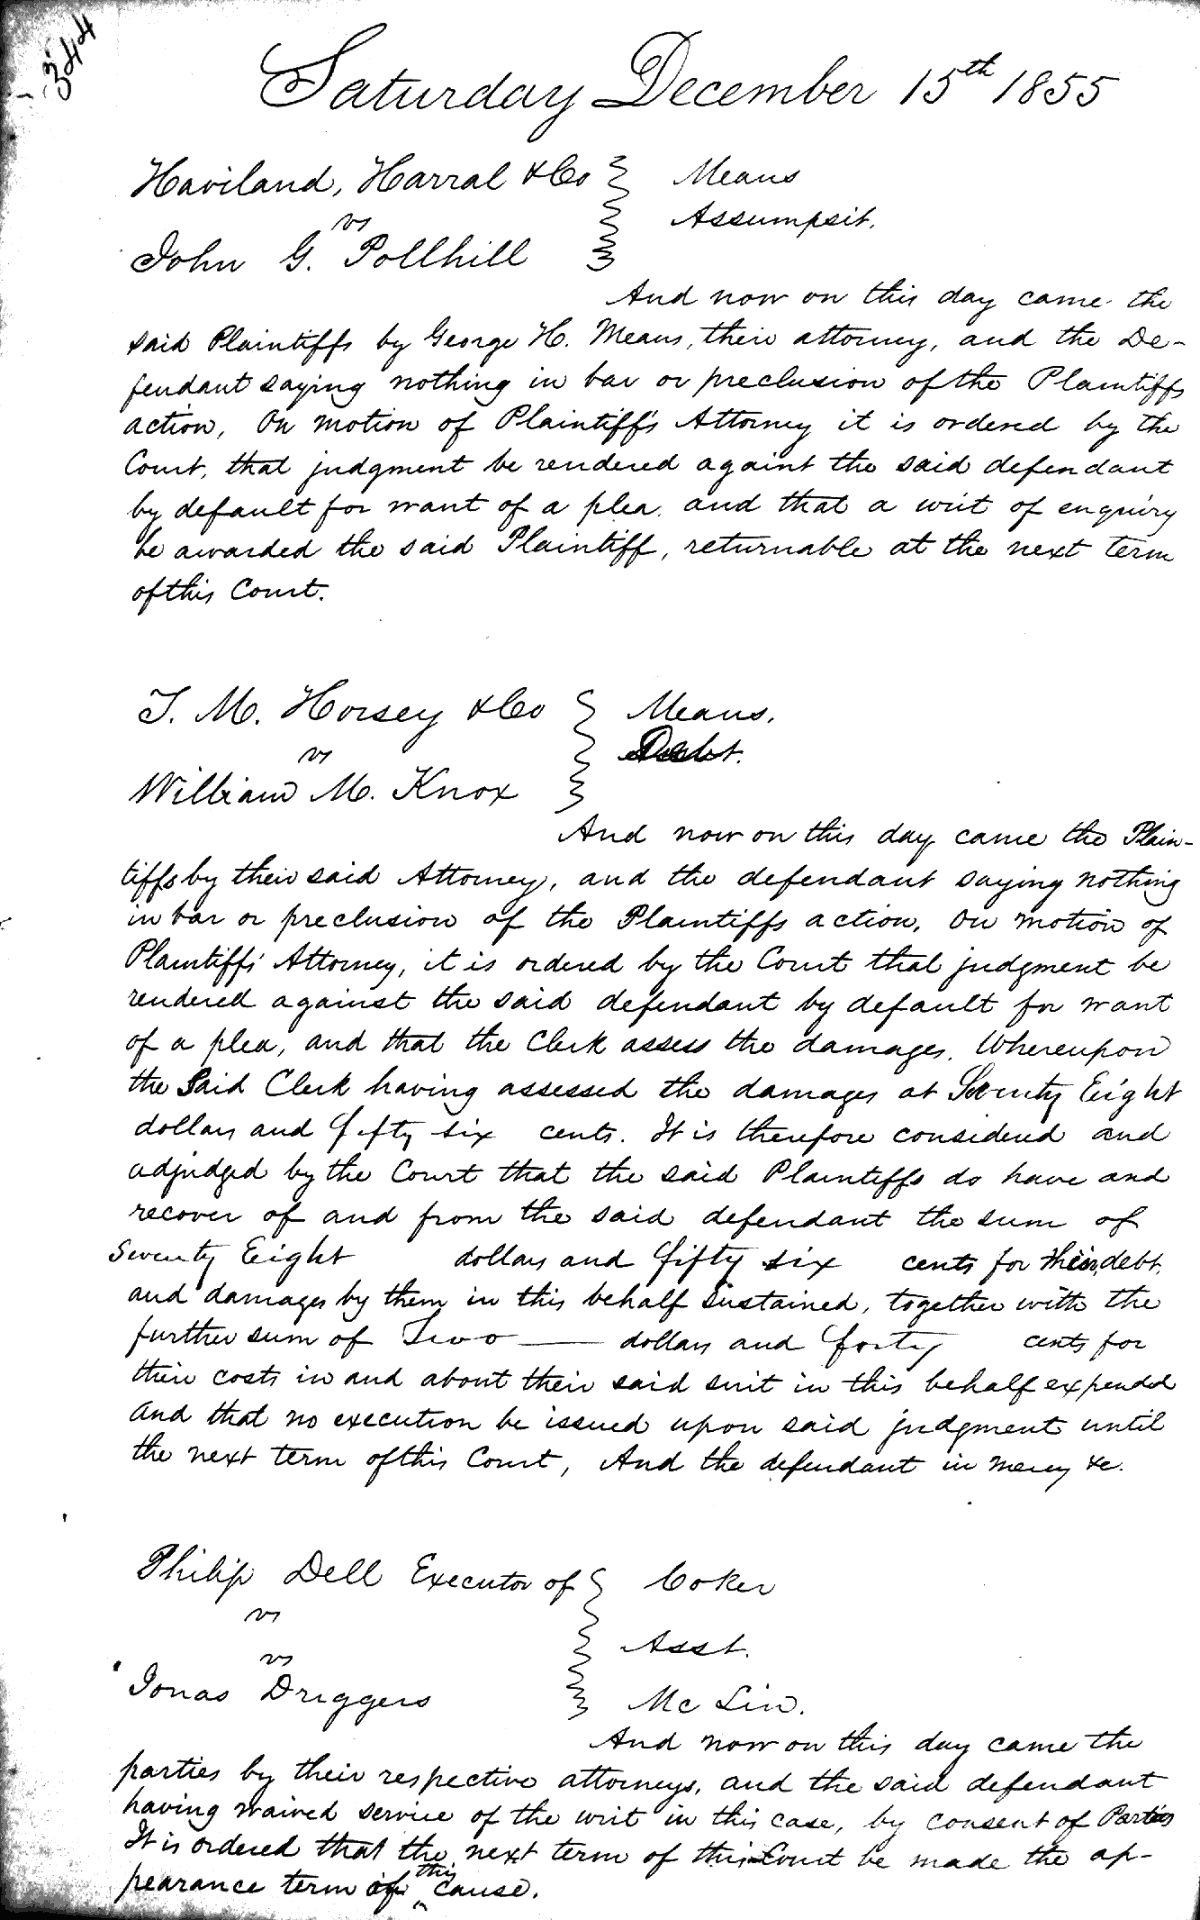 344
Saturday December 15th 1855
Haviland, Harral & Co
vs
John G. Pollhill
Means
Assumpsit.
And now on this day came the
said Plaintiffs by George H. Means, their attorney, and the De-
fendant saying nothing in bar or preclusion of the Plaintiffs
action, On motion of Plaintiff's Attorney it is ordered by the
Court, that judgment be rendered againt the said defendant
by default for want of a plea. and that a writ of enquiry
be awarded the said Plaintiff, returnable at the next term
of this Court.
T. M. Horsey & Co
vs
William M. Knox
Means.
Debt.
And now on this day came the Plain-
tiffs by their said Attorney, and the defendant saying nothing
in bar or preclusion of the Plaintiffs action. On motion of
Plaintiffs' Attorney, it is ordered by the Court that judgment be
rendered against the said defendant by default for want
of a plea, and that the Clerk assess the damages. Whereupon
the Said Clerk having assessed the damages at Seventy Eight
dollars and fifty six cents. It is therefore considered and
adjudged by the Court that the said Plaintiffs do have and
recover of and from the said defendant the sum of
Seventy Eight dollars and fifty six cents for their debt.
and damages by them in this behalf sustained, together with the
further sum of Two — dollars and forty cents for
their costs in and about their said suit in this behalf expended
And that no execution be issued upon said judgment until
the next term of this Court, And the defendant in mercy &c.
Philip Dell Executor of
vs
vs
Jonas Driggers
Coker
Asst.
Mc Lin.
And now on this day came the
parties by their respective attorneys, and the said defendant
having waived service of the writ in this case, by consent of Parties
It is ordered that the next term of this Court be made the ap-
pearance term of this cause.